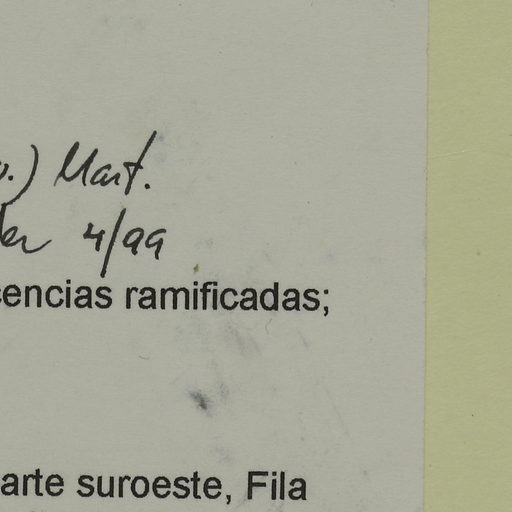 .) Mart.
4/99
cencias ramificadas;
arte suroeste, Fila